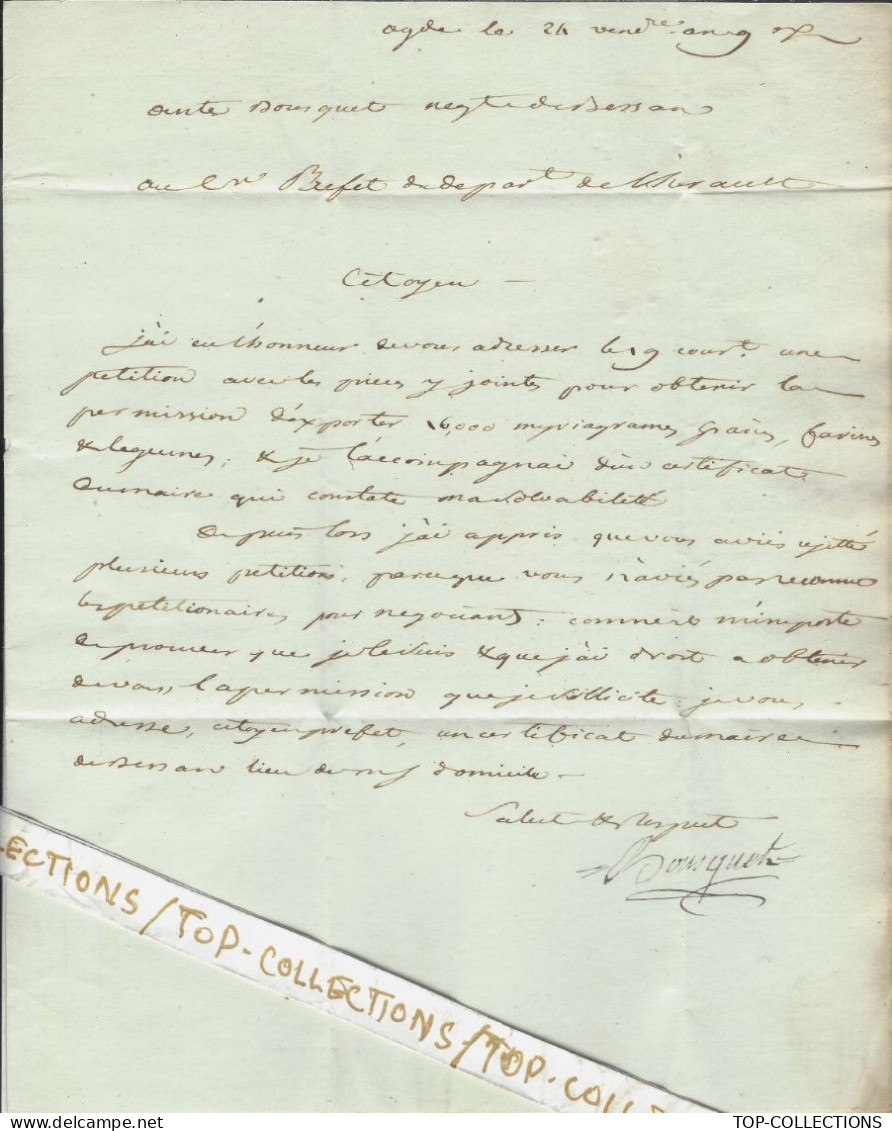 agde le 24 vend.re an 9
ante Bousquet negt de Bessan
au Cn Prefet du depart.t de l'herault
Citoyen —
j'ai eu l'honneur de vous adresser le 9 court. une
petition avec les pieces y jointes pour obtenir la
permission d'exporter 16,000 myriagrames grains, farines
& legumes; & je l'accompagnai d'un certificat
du maire qui constate ma solvabilité
depuis lors j'ai appris que vous aviés rejetté
plusieurs petitions, parceque vous n'aviés pas reconnu
les petitionaires pour negociants: comme il m'importe
de prouver que je le suis & que j'ai droit a obtenir
de vous, la permission que je sollicite; je vous
adresse, citoyen prefet, un certificat du maire
de Bessan lieu de mon domicile —
Salut & Respect
Bousquet
LECTIONS/TOP-COLLECTIONS/TOP-COLLE
TOP-COLLECTIONS